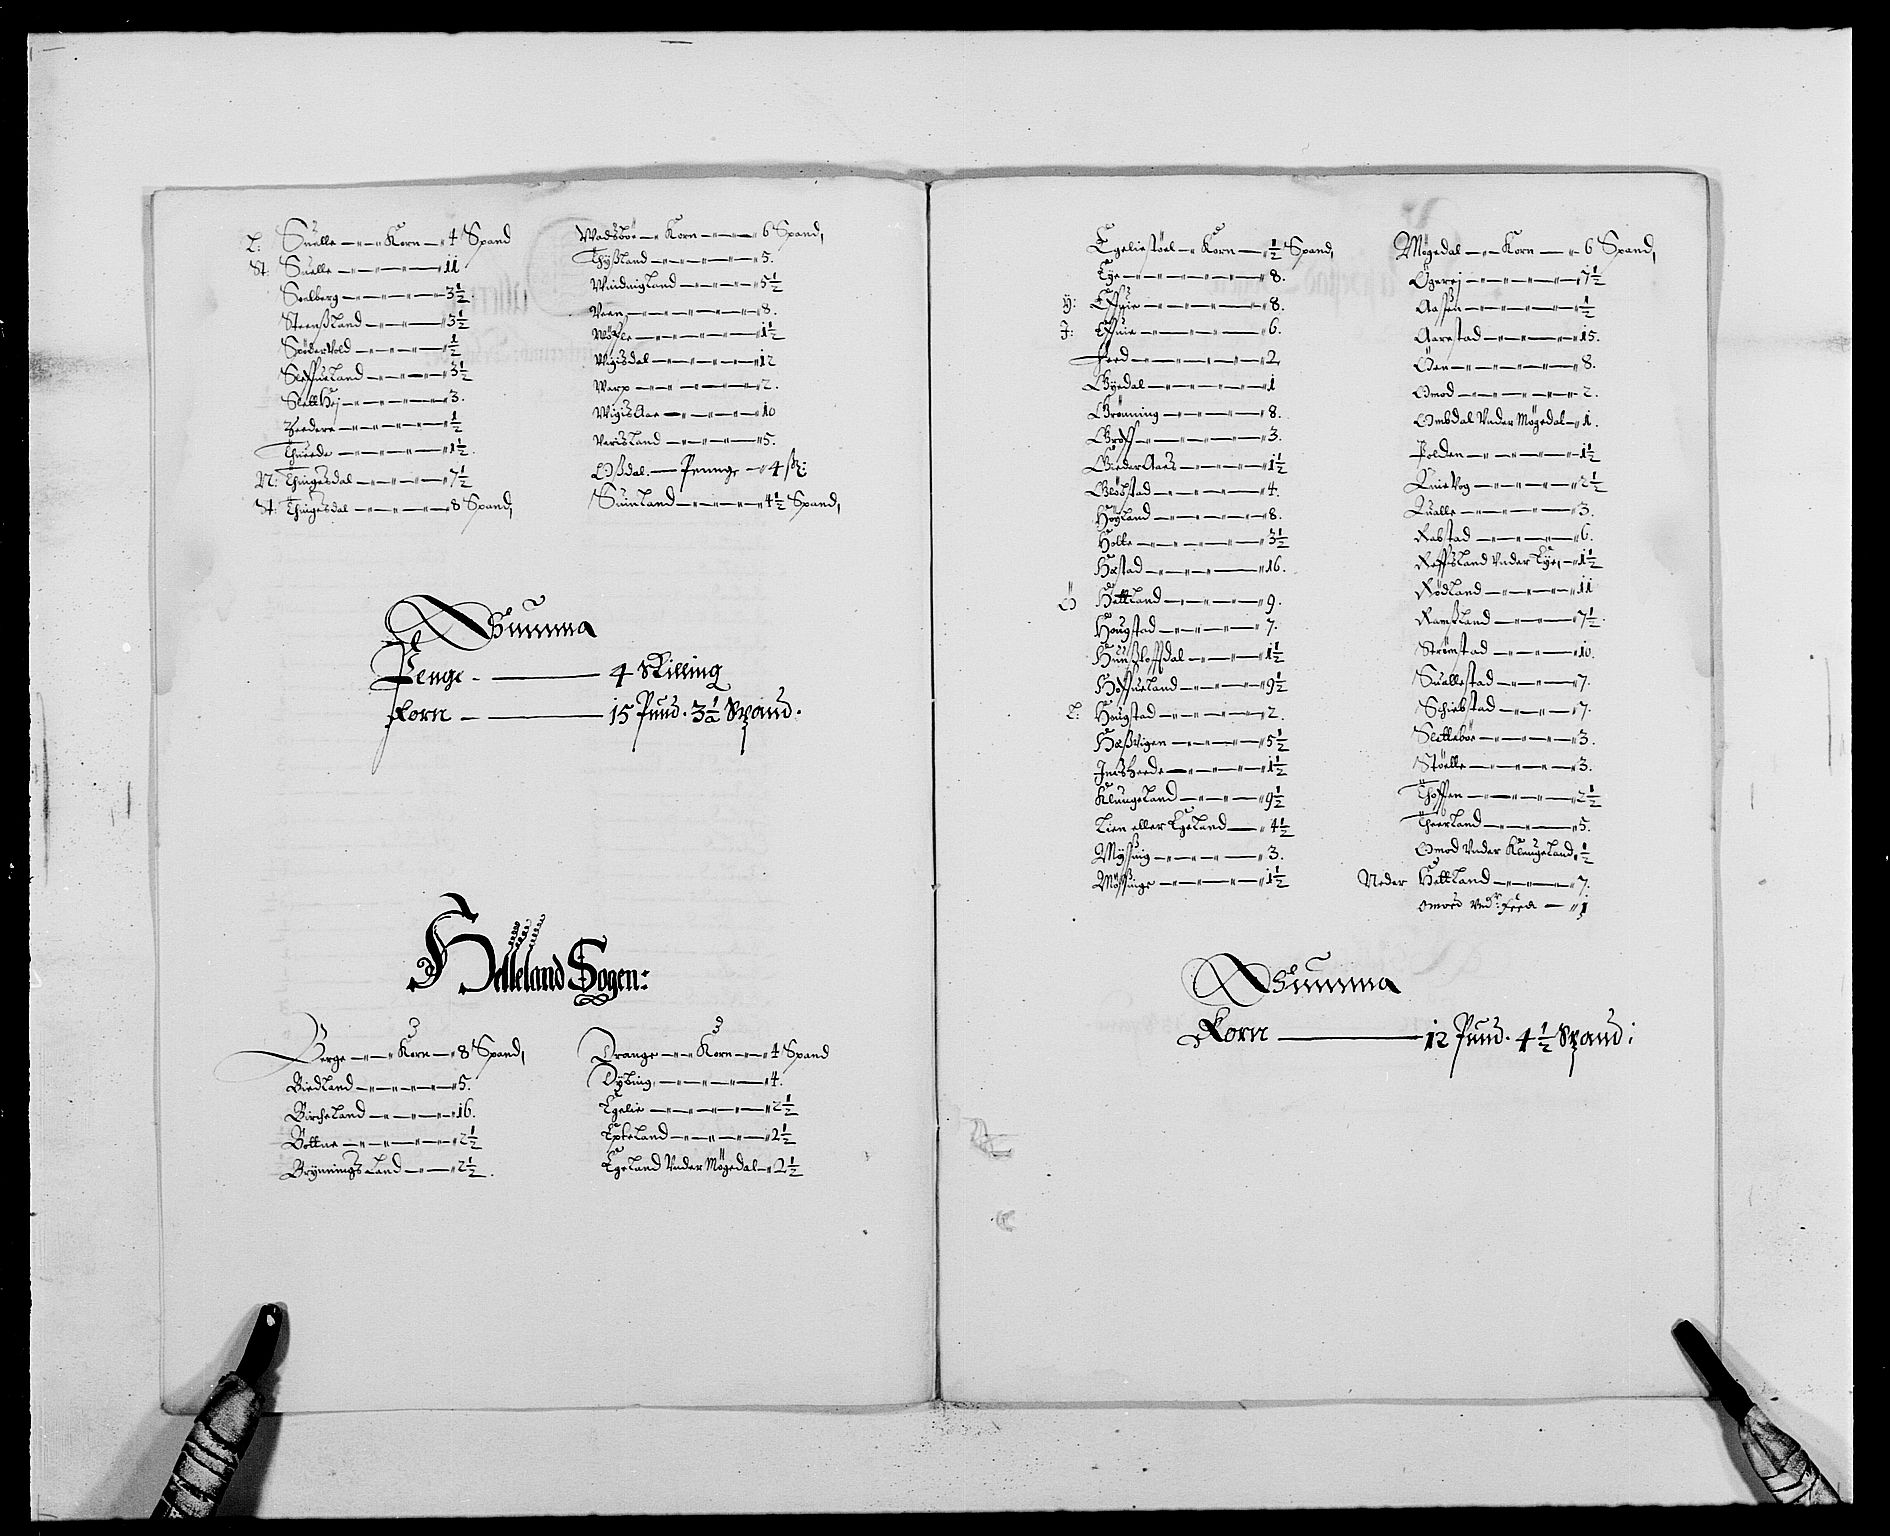 L: Suelle — Korn — 4 Spand
St: Suelle — 11
Seelberg — 3 1/2
Steensland — 3 1/2
Spødervold — 1/2
Sleffueland — 3 1/2
Sletthej — 3.
Zeedere — 1/2
Thueede — 1 1/2
N: Thingesdal — 7 1/2
St: Thingesdal — 8 Spand,
Wadsböe — Korn — 6 Spand,
Thyssland — 5.
Windingland — 5 1/2
Veen — 8.
— 1 1/2
Wigisdal — 12
Warp — 2.
Wigisaae — 10
Verisland — 5.
Ossdal — Penge — 4 sk:
Suinland — 4 1/2 Spand,
Summa
Penge — 4 Skilling
Korn — 15 Pund. 3 1/2 Spand.
Helleland Sogen:
Berge — Korn — 8 Spand,
Biedland — 5.
Bircheland — 16.
Bottne — 2 1/2
Brynningsland — 2 1/2.
Drange — Korn — 4 Spand
Dybing — 4.
Egelie — 2 1/2
Epteland — 2 1/2
Egeland Vnder Møgedal — 2 1/2
Egeliestöel — Korn — 1/2 Spand,
Eye — 8.
Y: Effuie — 8.
I: Effuie — 6.
Feed — 2
Gyedal — 1
Grønning — 8.
Groff — 3.
— 1 1/2
Gløbstad — 4.
Høyland — 8.
Holte — 3 1/2
Hæstad — 16.
Ö Hettland — 9.
Hougstad — 7.
— 1 1/2
Hoffueland — 9 1/2
L: Hougstad — 2.
Hæssvigen — 5 1/2
— 1 1/2
Klungeland — 9 1/2
Lien eller Egeland — 4 1/2
Myssing — 3.
Møssinge — 1 1/2
Møgedal — Korn — 6 Spand,
Ögerej — 7 1/2
Aassen — 1/2
Aarestad — 15.
Öen — 8.
Omod — 2.
Ombdal Vnder Møgedal — 1.
Polden — 1 1/2
Quievog — 2 1/2
Qualle — 3.
Rabstad — 6.
Reffsland Vnder Eye — 1 1/2
Rödland — 11
Ramssland — 7 1/2.
Strømstad — 10.
Suallestad — 7.
Schiebstad — 7.
Slettebøe — 3.
Støelle — 3.
Thoffen — 2 1/2
Theerland — 5.
Omod Vnder Klungeland 1/2
Neder Hettland — 7.
Omoed Vnd: Feed — 1
Summa
Korn — 12 Pund. 4 1/2 Spand: